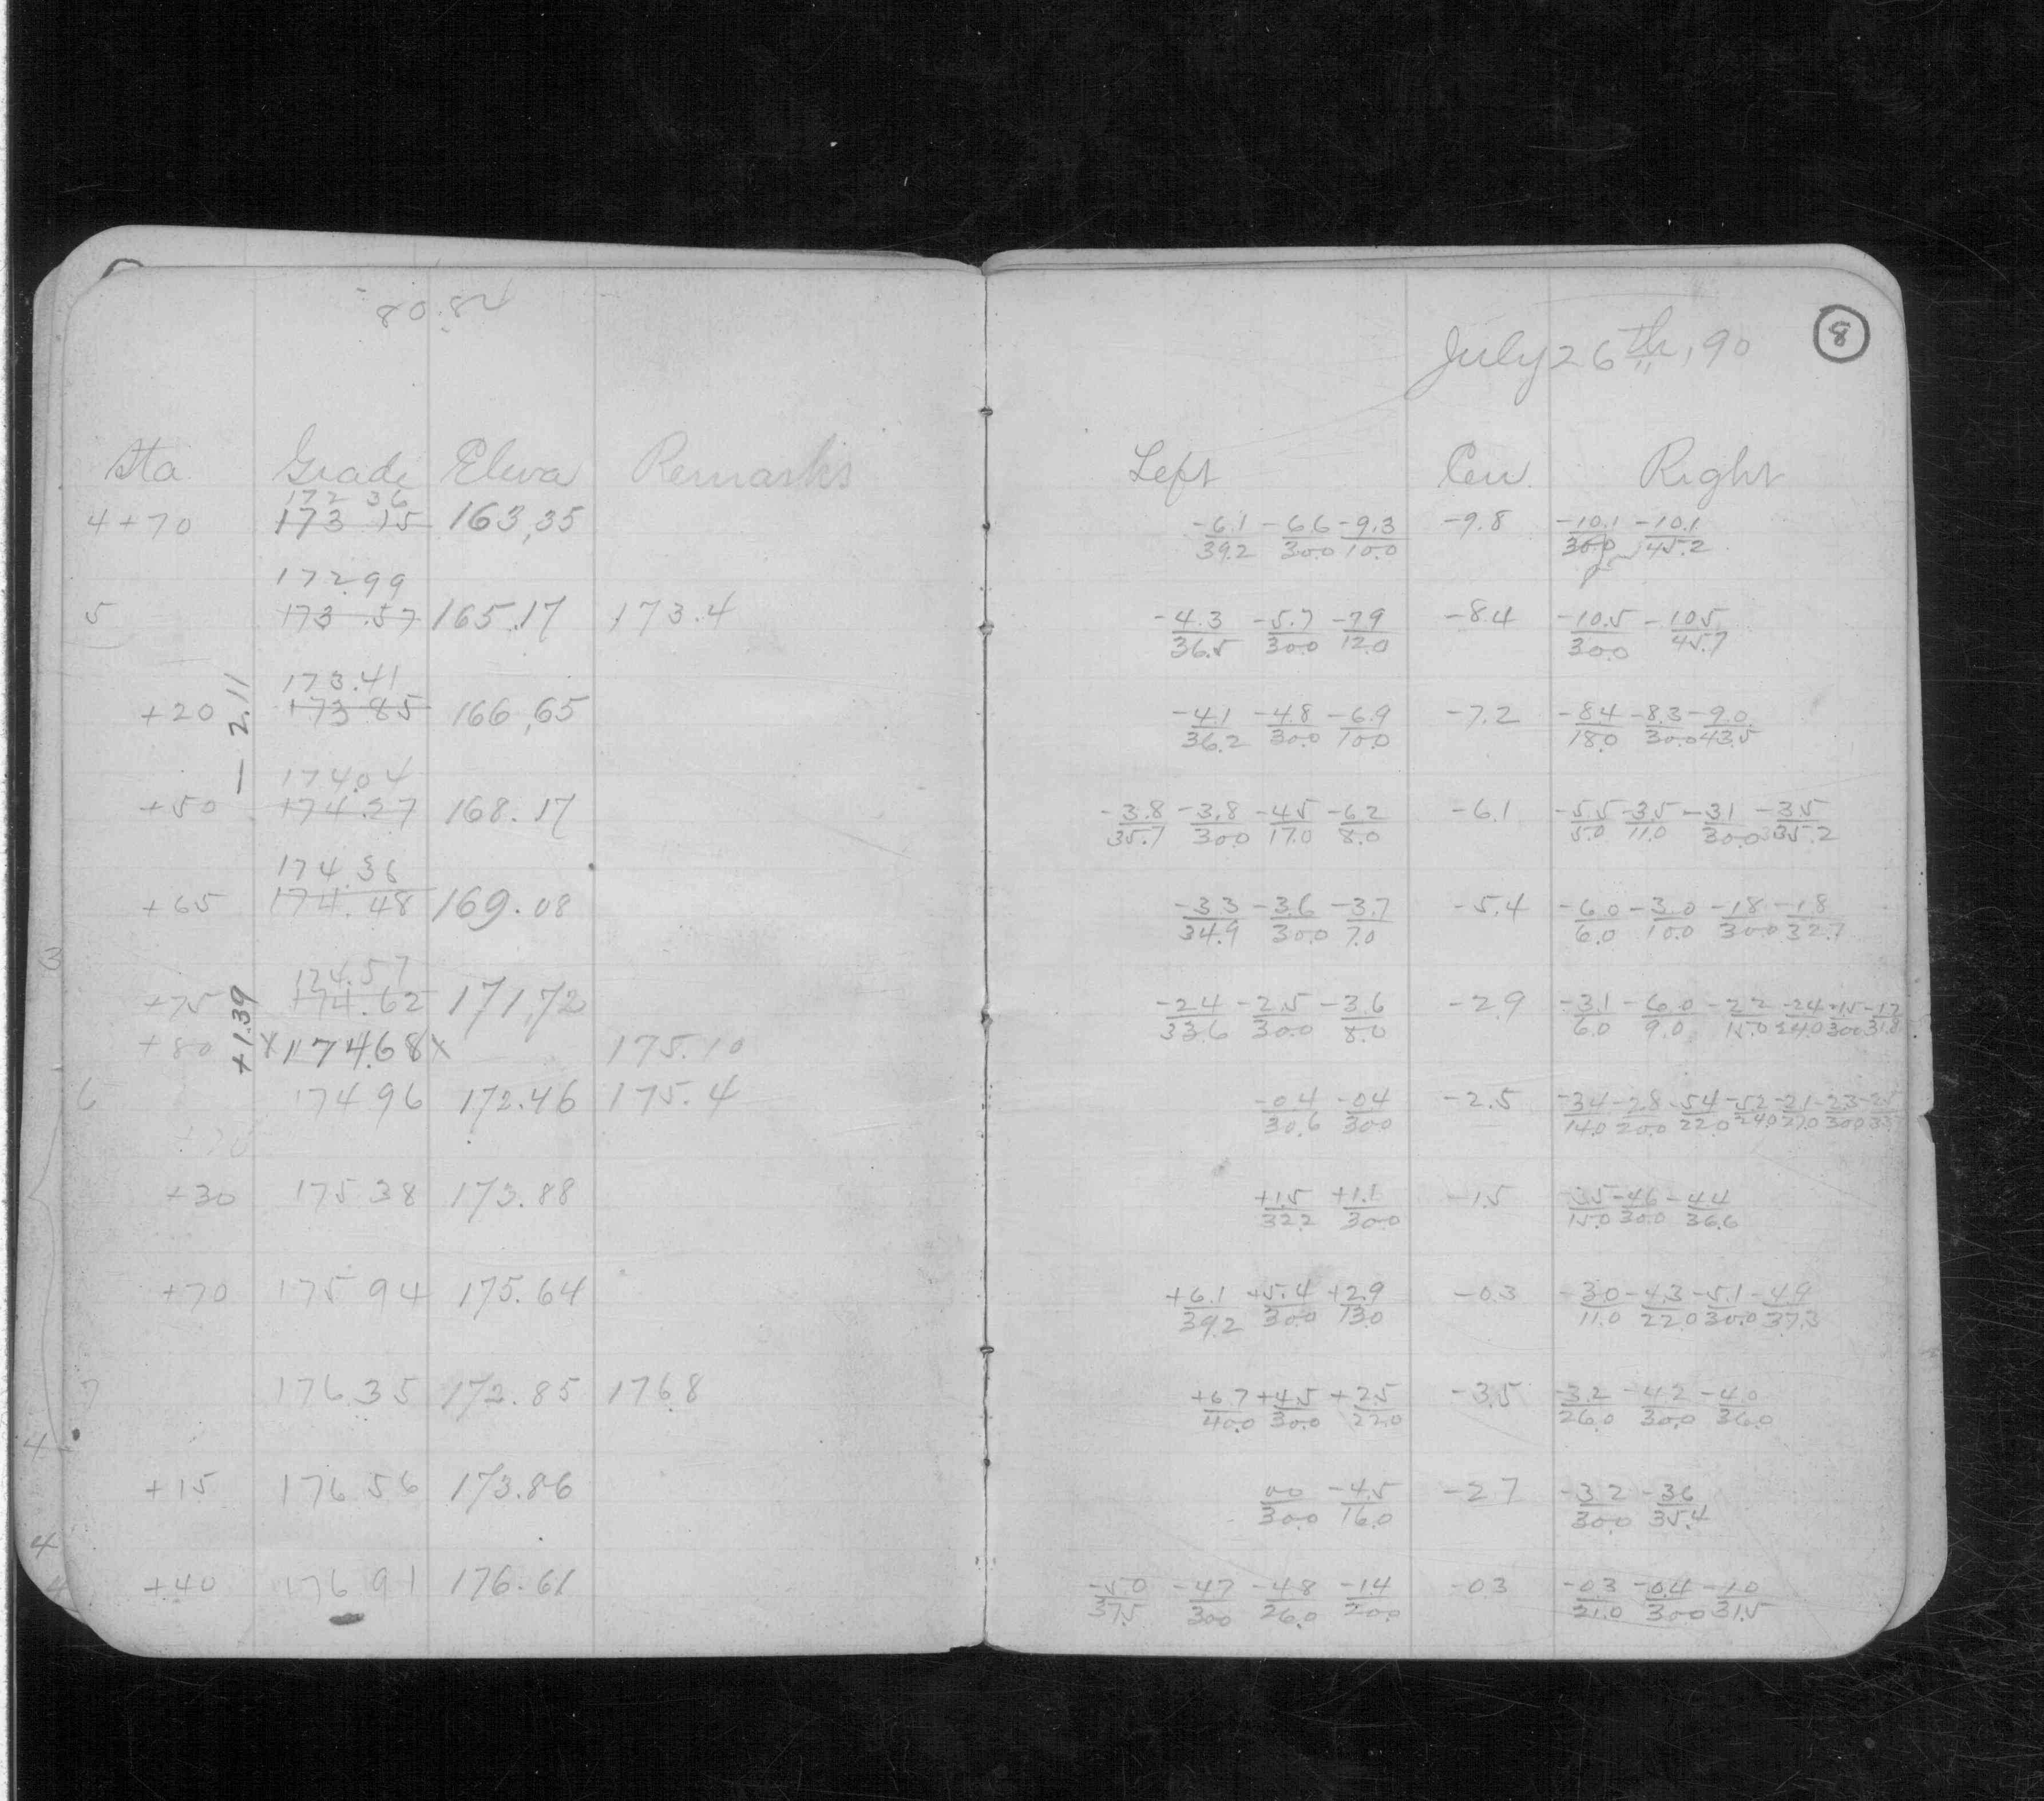 80.82
Sta Grade Eleva Remarks
172 36
4+70 173 15 163,35
172.99
5 173.57 165.17 173.4
173.41
+20 173 85 166,65
- 2.11
174.04
+50 174.27 168.17
174.36
+65 174.48 169.08
3
174.57
+75 174.62 171,72
+1.39
+80 x 174.68 x 175.10
6 174 96 172.46 175.4
+30 175 38 173.88
+70 175 94 175.64
7 176 35 172.85 176.8
4
+15 176 56 173.86
4
+40 176 91 176.61
8
July 26th, 90
Left Cen. Right
-6.1/39.2 -6.6/30.0 -9.3/10.0 -9.8 -10.1/30.0 -10.1/45.2
-4.3/36.5 -5.7/30.0 -7.9/12.0 -8.4 -10.5/30.0 -10.5/45.7
-4.1/36.2 -4.8/30.0 -6.9/10.0 -7.2 -8.4/18.0 -8.3/30.0 -9.0/43.5
-3.8/35.7 -3.8/30.0 -4.5/17.0 -6.2/8.0 -6.1 -5.5/5.0 -3.5/11.0 -3.1/30.0 -3.5/35.2
-3.3/34.9 -3.6/30.0 -3.7/7.0 -5.4 -6.0/6.0 -3.0/10.0 -1.8/30.0 -1.8/32.7
-2.4/33.6 -2.5/30.0 -3.6/8.0 -2.9 -3.1/6.0 -6.0/9.0 -2.2/15.0 -2.4/24.0 -1.5/30.0 -1.2/31.8
-0.4/30.6 -0.4/30.0 -2.5 -3.4/14.0 -2.8/20.0 -5.4/22.0 -5.2/24.0 -2.1/27.0 -2.3/30.0
+1.5/32.2 +1.1/30.0 -1.5 -3.5/15.0 -4.6/30.0 -4.4/36.6
+6.1/39.2 +5.4/30.0 +2.9/13.0 -0.3 -3.0/11.0 -4.3/22.0 -5.1/30.0 -4.9/37.3
+6.7/40.0 +4.5/30.0 +2.5/22.0 -3.5 -3.2/26.0 -4.2/30.0 -4.0/36.0
0.0/30.0 -4.5/16.0 -2.7 -3.2/30.0 -3.6/35.4
-5.0/37.5 -4.7/30.0 -4.8/26.0 -1.4/20.0 -0.3 -0.3/21.0 -0.4/30.0 -1.0/31.5